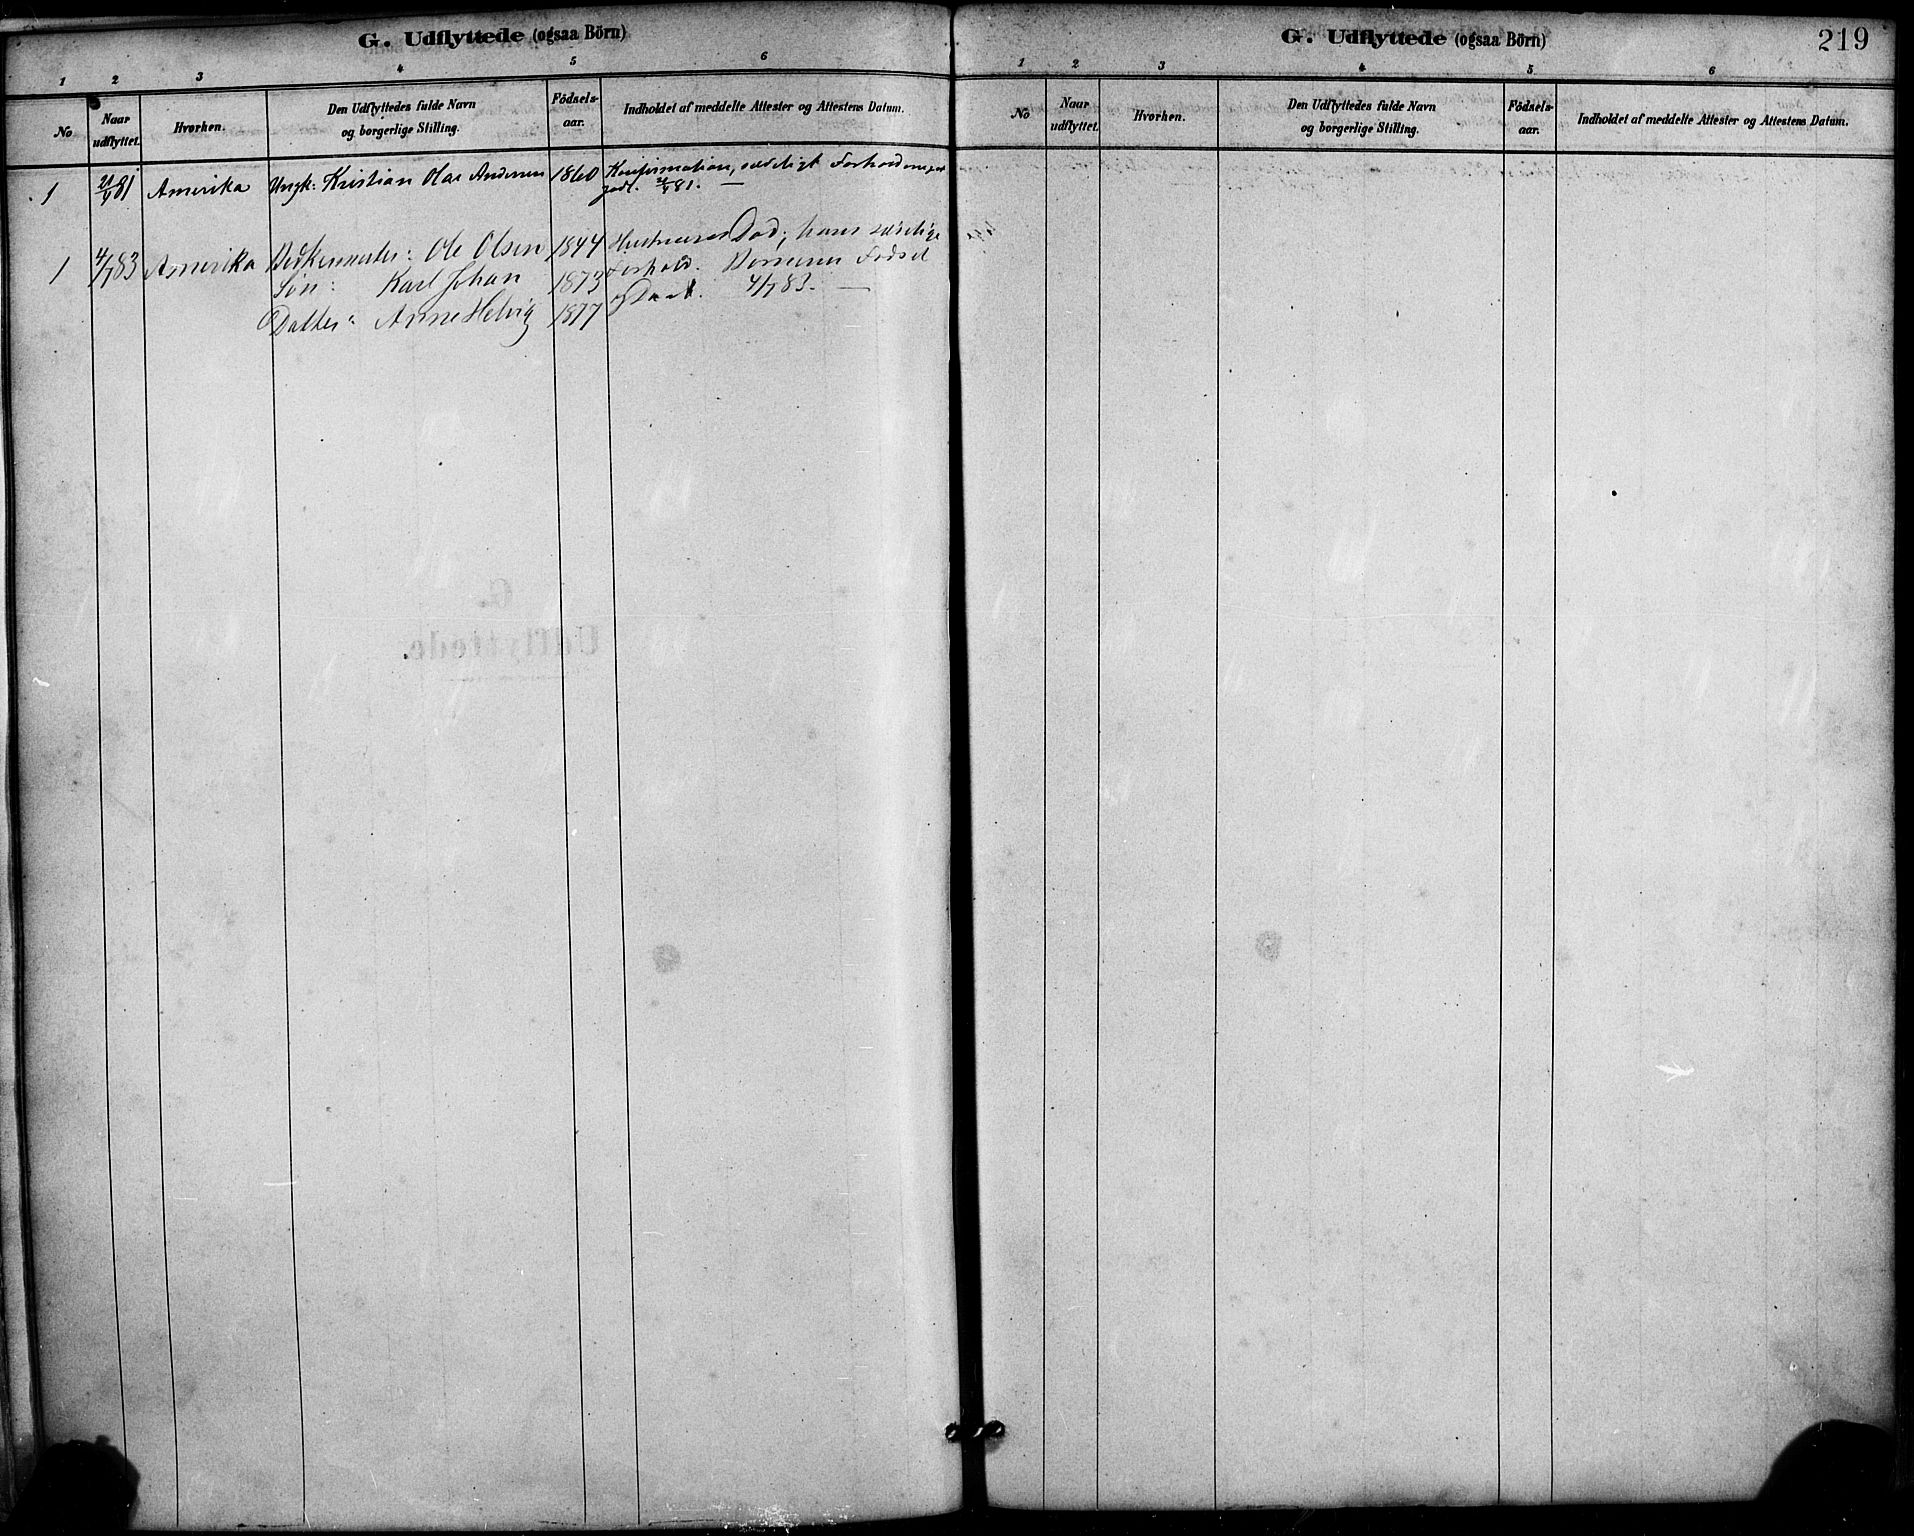 G. Udflyttede (ogsaa Börn)
1 2 3 4 5 6
No
Naar udflyttet.
Hvorhen.
Den Udflyttedes fulde Navn og borgerlige Stilling.
Födsels-aar.
Indholdet af meddelte Attester og Attestens Datum.
1 81 Amerika Ungk: Kristian Olai Andersen 1860 Konfirmation, sædeligt Forhold
godt. 81. —
1 4/7 83 Amerika Ole Olsen 1844 Hustrues Död; hans sædelige
Sön: Karl Johan 1873 Forhold. Börnenes Födsel
Datter: Anne Helvig 1877 og Daab. 4/7 83. —
G. Udflyttede (ogsaa Börn)
219
1 2 3 4 5 6
No
Naar udflyttet.
Hvorhen.
Den Udflyttedes fulde Navn og borgerlige Stilling.
Födsels-aar.
Indholdet af meddelte Attester og Attestens Datum.
G.
Udflyttede.